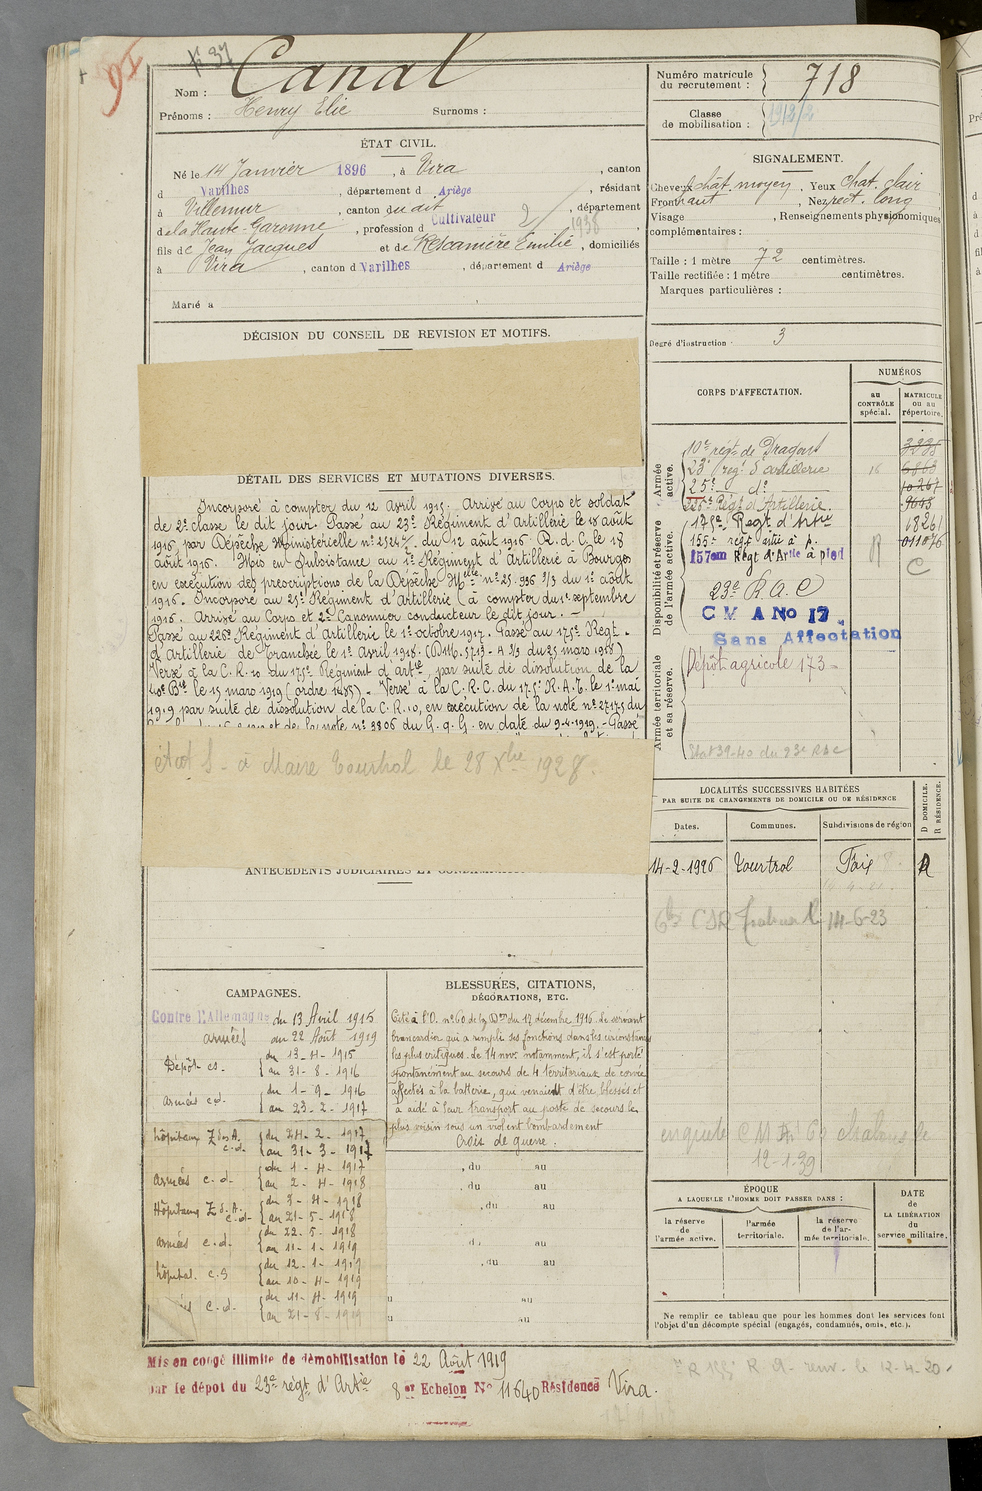 91
Nom : Canal
Prénoms : Henry Elie Surnoms :
ÉTAT CIVIL.
Né le 14 Janvier 1896, à Vira, canton
d Varilhes, département d Ariège, résidant
à Villemur, canton du dit, département
de la Haute-Garonne, profession d Cultivateur
1938
fils de Jean Jacques et de Emilie, domiciliés
à Vira, canton d Varilhes, département d Ariège
Marié à
DÉCISION DU CONSEIL DE REVISION ET MOTIFS.
DÉTAIL DES SERVICES ET MUTATIONS DIVERSES.
Incorporé à compter du 12 Avril 1915. Arrivé au Corps et soldat
de 2e classe le dit jour. Passé au 23e Régiment d'Artillerie le 18 août
1916, par Dépêche Ministerielle no 2524 du 12 août 1916 R. d. C. le 18
août 1916. Mis en Subsistance au 1er Régiment d'Artillerie à Bourges
en exécution des prescriptions de la Dépêche Melle no 25.936 2/3 du 1er août
1916. Incorporé au 25e Régiment d'Artillerie à compter du 1er septembre
1916. Arrivé au Corps et 2e Canonnier conducteur le dit jour. -
Passé au 226e Régiment d'Artillerie le 1er octobre 1917. Passé au 175e Régt
d'Artillerie de Tranchée le 1er Avril 1918. (D.M. 5713 - A 2/3 du 25 mars 1918)
Versé à la C.R. 10 du 175e Régiment d'artie, par suite de dissolution de la
Bie le 15 mars 1919 (ordre 1485) - Versé à la C.R.C. du 175e R.A.T. le 1er mai
1919 par suite de dissolution de la C.R. 10, en exécution de la note no 27175 du
et de la note no 3806 du G.Q.G. en date du 9-4-1919. - Passé
à Maire Tourtrol le 28 Xbre 1928.
ANTÉCÉDENTS JUDICIAIRES ET
CAMPAGNES.
Contre l'Allemagne du 13 Avril 1915
armées au 22 Août 1919
Dépôt cs. du 13-4-1915
au 31-8-1916
armées cd. du 1-9-1916
au 23-2-1917
hôpitaux Z des A. c.d. du 24-2-1917
au 31-3-1917
armées c.d. du 1-4-1917
au 2-4-1918
Hôpitaux Z d. A. c.d. du 3-4-1918
au 21-5-1918
armées c.d. du 22-5-1918
au 11-1-1919
hôpital c.s du 12-1-1919
au 10-4-1919
c.d. du 11-4-1919
au 21-8-1919
BLESSURES, CITATIONS,
DÉCORATIONS, ETC.
Cité à l'O. no 60 de la du 17 décembre 1916. Le servant
brancardier qui a rempli ses fonctions dans les circonstances
les plus critiques. Le 14 nov. notamment, il s'est porté
spontanément au secours de 4 territoriaux de corvée
affectés à la batterie, qui venaient d'être blessés et
a aidé à leur transport au poste de secours le
plus voisin sous un violent bombardement
Croix de guerre.
, du au
, du au
, du au
du au
, du au
u au
u au
Mis en congé illimité de démobilisation le 22 Août 1919
par le dépôt du 23e régt d'Artie 8 er Echelon No 11640 Résidence Vira.
Numéro matricule
du recrutement : 718
Classe
de mobilisation : 1912/2
SIGNALEMENT.
Cheveux chât. moyen, Yeux chat. clair
Front haut, Nez rect. long
Visage , Renseignements physionomiques
complémentaires :
Taille : 1 mètre 72 centimètres.
Taille rectifiée : 1 mètre centimètres.
Marques particulières :
Degré d'instruction : 3
CORPS D'AFFECTATION.
NUMÉROS
au CONTRÔLE spécial.
MATRICULE ou au répertoire.
Armée active.
Disponibilité et réserve de l'armée active.
Armée territoriale et sa réserve.
10e régt de Dragons 3235
23e régt d'artillerie 16
25e do 10267
226e Régt d'Artillerie. 9645
175e Regt d'Artie 18261
155e régt artie à p. 011076
157em Régt d'Artie à pied
C
23e R.A.C
C M A No 17
Sans Affectation
Dépôt agricole 173
Etat 39-40 du 23e RAC
LOCALITÉS SUCCESSIVES HABITÉES
PAR SUITE DE CHANGEMENTS DE DOMICILE OU DE RÉSIDENCE
Dates. Communes. Subdivisions de région D DOMICILE. R RÉSIDENCE.
14-2-1926 Tourtrol Foix R
14-6-23
enquête C M A
12-1-39
ÉPOQUE
A LAQUELLE L'HOMME DOIT PASSER DANS :
la réserve de l'armée active.
l'armée territoriale.
la réserve de l'armée territoriale.
DATE de LA LIBÉRATION du service militaire.
Ne remplir ce tableau que pour les hommes dont les services font
l'objet d'un décompte spécial (engagés, condamnés, omis, etc.).
R. A. renv. le 12-4-20